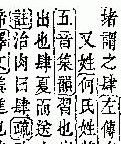 謂之肆左傳
又姓何氏姓
五音集韻習也
出也肆夏而送
註治肉曰肆疏